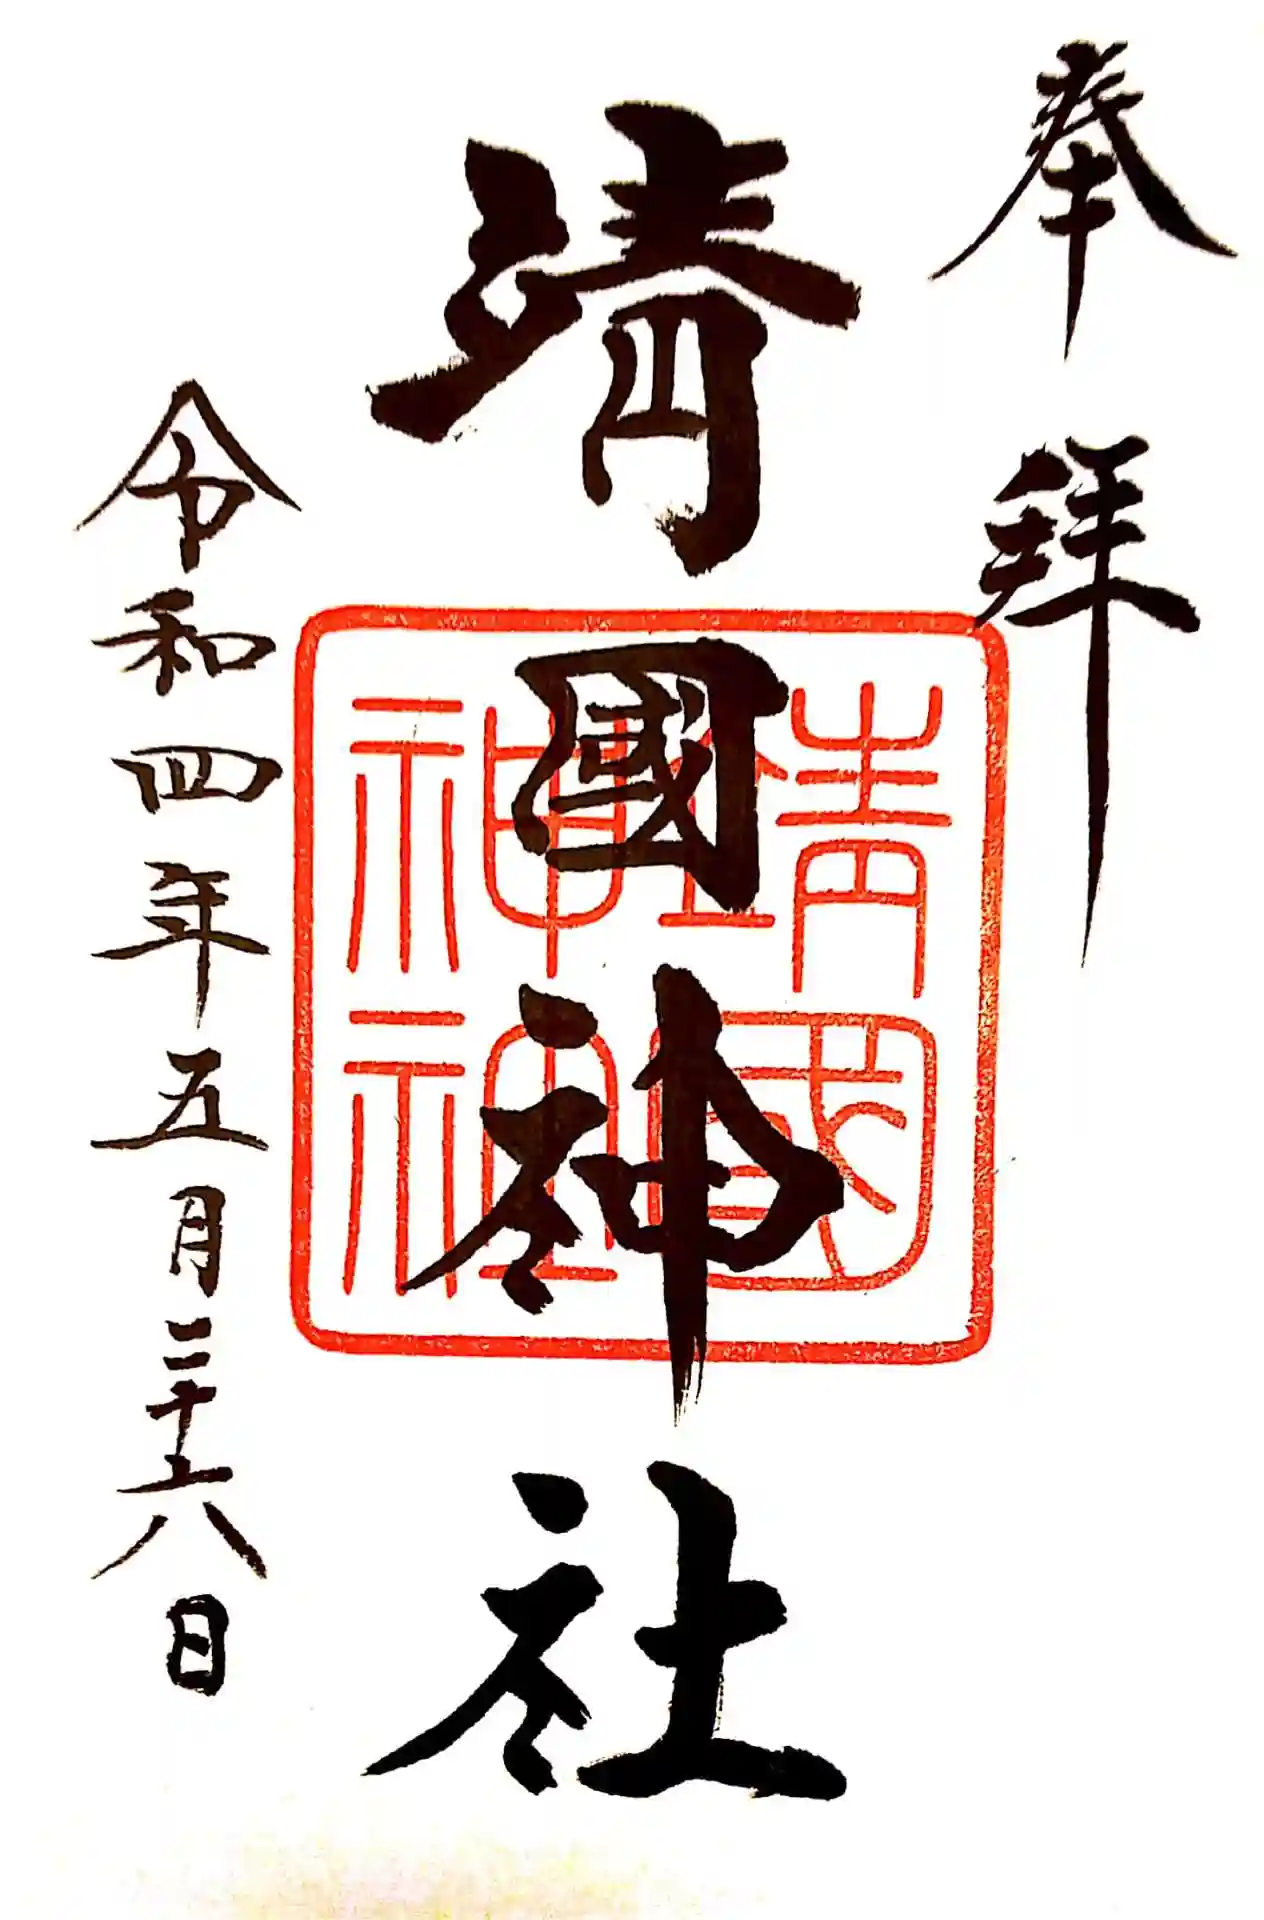 奉拝
靖國神社
靖國
神社
令和四年五月二十六日